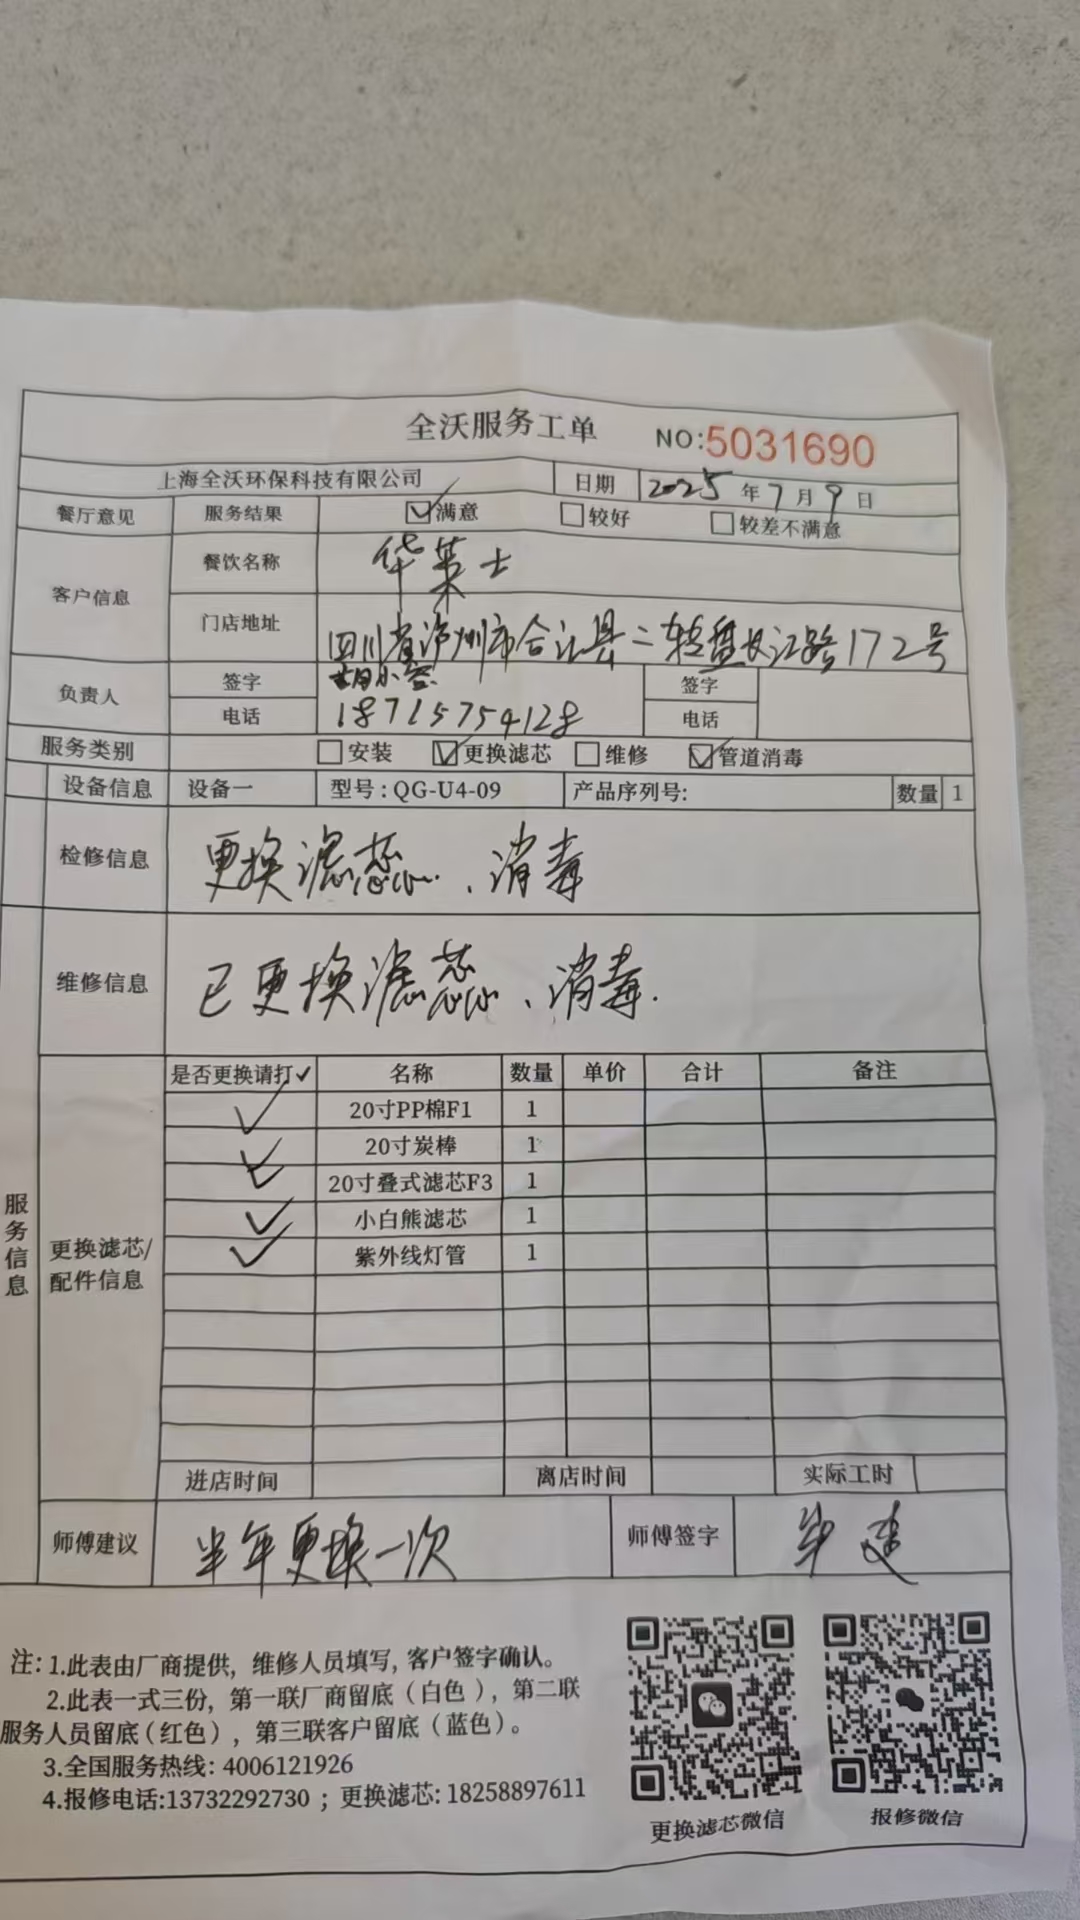 全沃服务工单 NO:5031690
上海全沃环保科技有限公司 日期 2025年7月9日
餐厅意见 服务结果 ☑满意 □较好 □较差不满意
客户信息 餐饮名称 华莱士
门店地址 四川省泸州市合江县二转盘长江路172号
负责人 签字 签字
电话 18715754128 电话
服务类别 □安装 ☑更换滤芯 □维修 ☑管道消毒
设备信息 设备一 型号:QG-U4-09 产品序列号: 数量 1
检修信息 更换滤芯、消毒
维修信息 已更换滤芯、消毒.
服务信息
更换滤芯/配件信息
是否更换请打✓ 名称 数量 单价 合计 备注
✓ 20寸PP棉F1 1
✓ 20寸炭棒 1
20寸叠式滤芯F3 1
✓ 小白熊滤芯 1
✓ 紫外线灯管 1
进店时间 离店时间 实际工时
师傅建议 半年更换一次 师傅签字
注:1.此表由厂商提供,维修人员填写,客户签字确认。
2.此表一式三份,第一联厂商留底(白色),第二联
服务人员留底(红色),第三联客户留底(蓝色)。
3.全国服务热线:4006121926
4.报修电话:13732292730;更换滤芯:18258897611
更换滤芯微信 报修微信